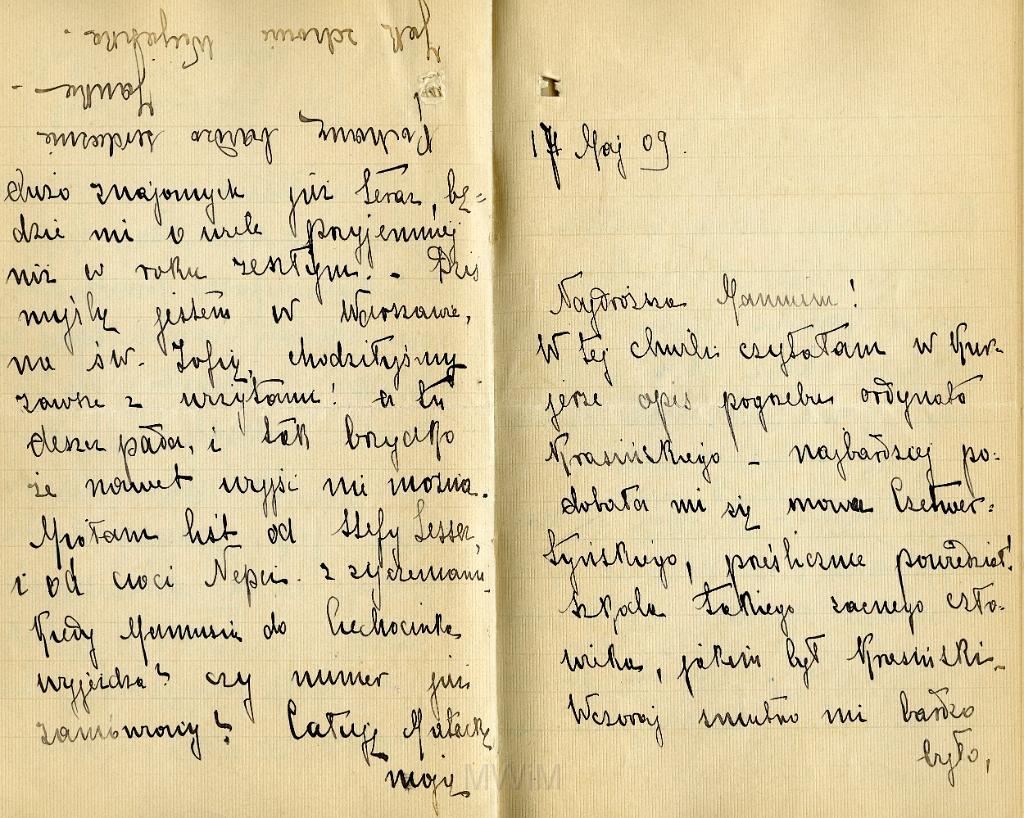 17 Maj 09.
Najdroższa Mamusiu!
W tej chwili czytałam w Kur-
jerze opis pogrzebu ordynata
Krasińskiego – najbardziej po-
dobała mi się mowa Czetwer-
tyńskiego, prześlicznie powiedział!
szkoda takiego zacnego czło-
wieka, jakim był Krasiński –
Wczoraj smutno mi bardzo
było,
dużo znajomych już teraz, bę-
dzie mi o wiele przyjemniej
niż w roku zeszłym. – Dziś
myślą jestem w Warszawie,
na św. Zofię, chodziłyśmy
zawsze z wizytami! a tu
deszcz pada, i tak brzydko
że nawet wyjść nie można.
Miałam list od Stefy Lesser,
i od cioci Nepci. z życzeniami
Kiedy Mamusia do Ciechocinka
wyjeżdża? czy numer już
zamówiony? Całuję Mateczkę
moją
Kochaną bardzo serdecznie
Janka –
Jak zdrowie Wujaszka.
MWiM